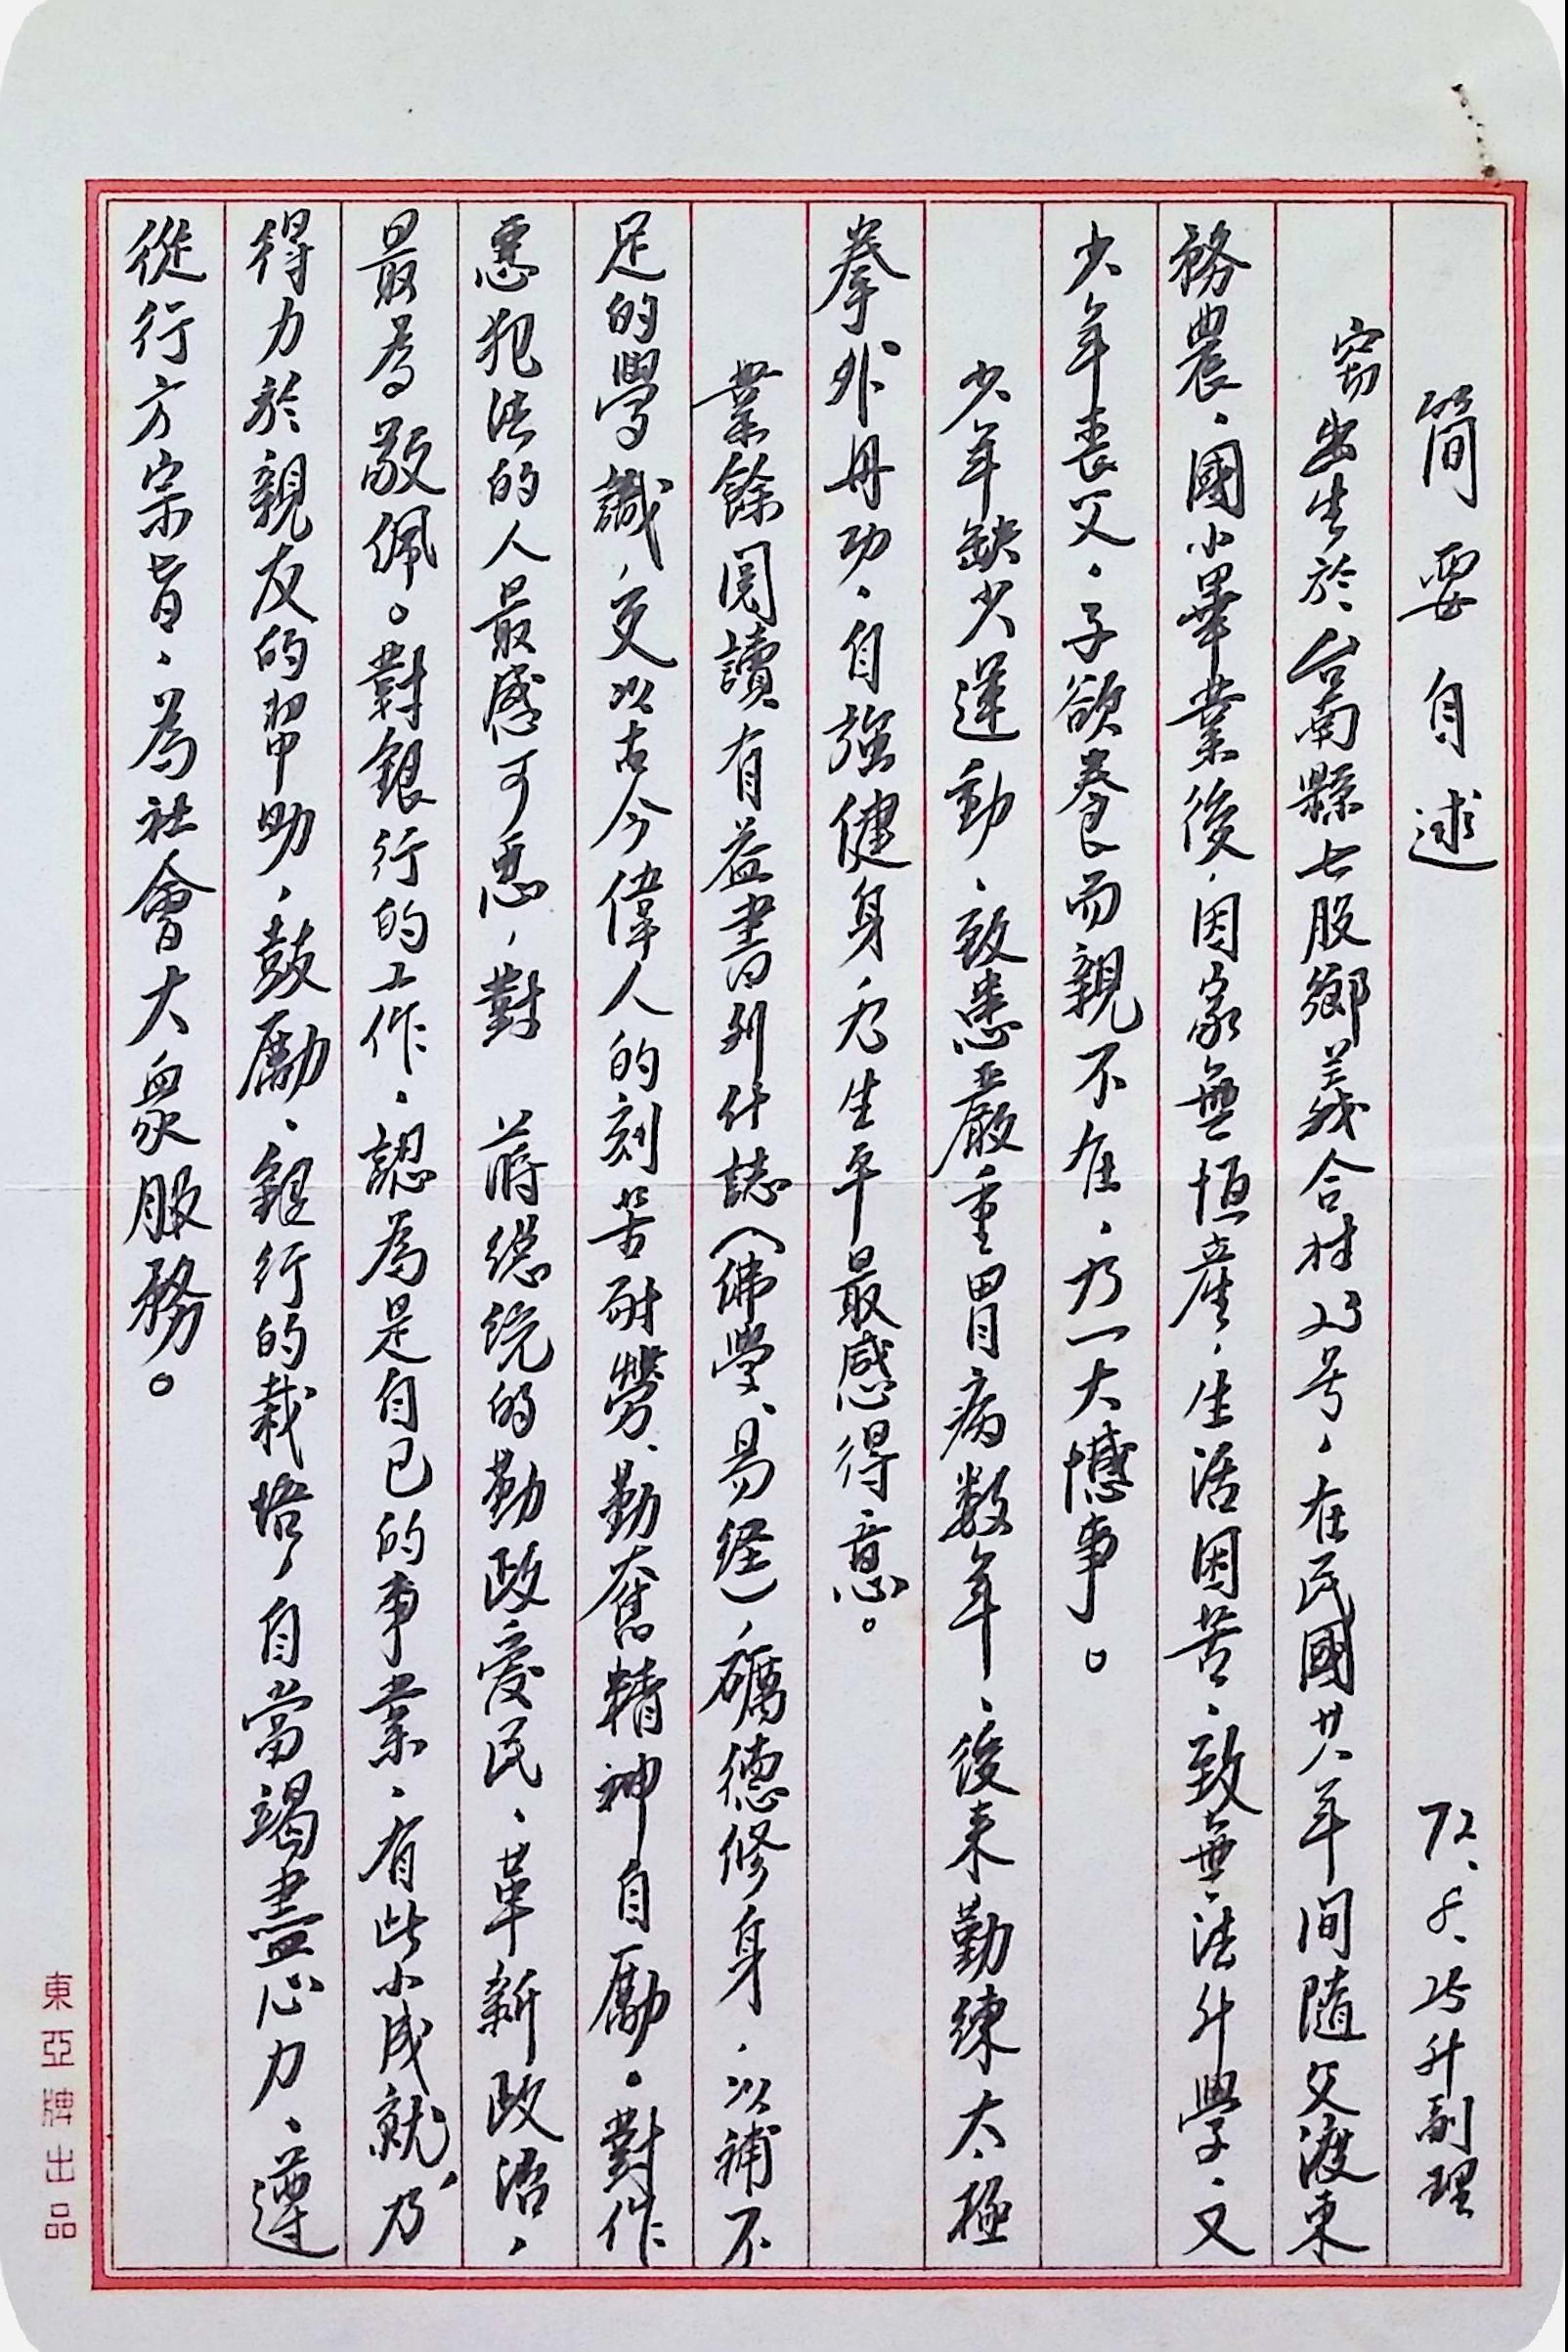 簡要自述 72.8.25升副理
竊出生於台南縣七股鄉義合村23号，在民國廿八年間隨父渡東
務農，國小畢業後，因家無恒產，生活困苦，致無法升學，又
少年喪父，子欲養而親不在，乃一大憾事。
少年缺少運動，致患嚴重胃病數年，後来勤練太極
拳外丹功，自強健身乃生平最感得意。
業餘閱讀有益書刋什誌（佛學、易経），礪德修身，以補不
足的學識，交以古今偉人的刻苦耐勞、勤奮精神自勵。對作
惡犯法的人最感可惡，對 蔣総统的勤政愛民、革新政治，
最為敬佩。對銀行的工作，認為是自已的事業，有此小成就，乃
得力於親友的幫助，鼓勵、銀行的栽培，自當竭盡心力、遵
從行方宗旨，為社會大衆服務。
東亞牌出品